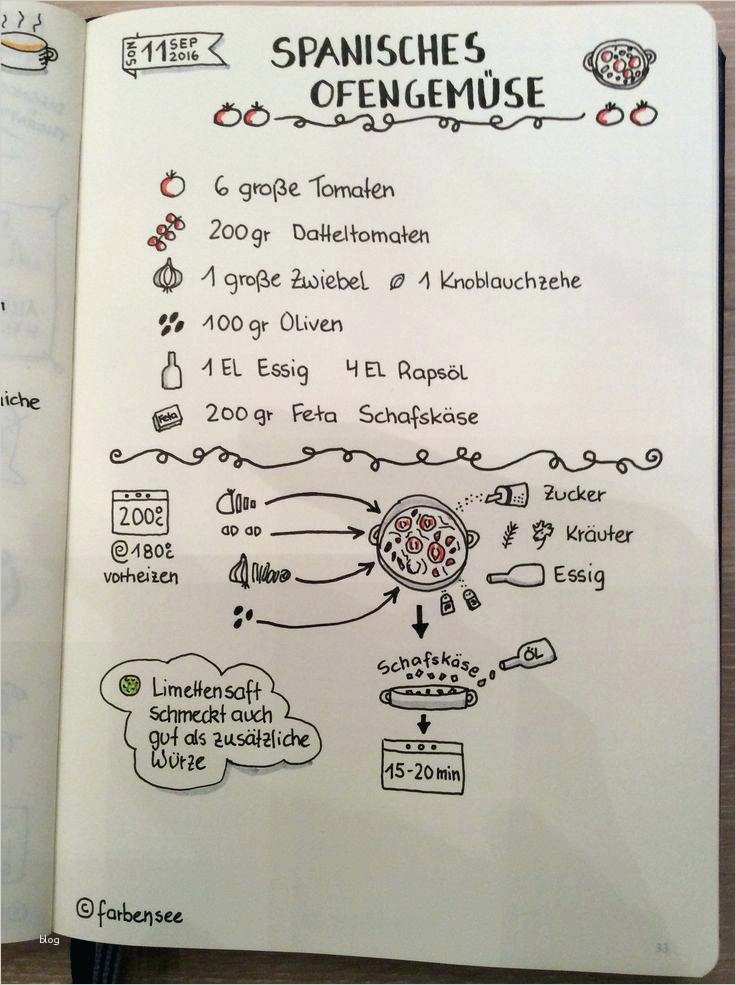 SON 11 SEP 2016
SPANISCHES
OFENGEMÜSE
6 große Tomaten
200gr Datteltomaten
1 große Zwiebel 1 Knoblauchzehe
100gr Oliven
1 EL Essig 4 EL Rapsöl
Feta 200gr Feta Schafskäse
liche
200°C
@180°C
vorheizen
Zucker
Kräuter
Essig
Schafskäse
ÖL
15-20min
Limettensaft
schmeckt auch
gut als zusätzliche
Würze
© farbensee
blog
33